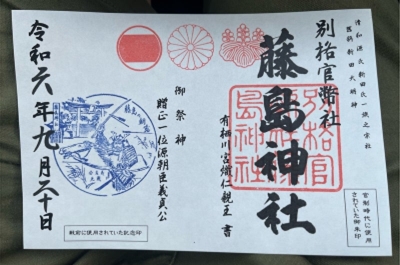 清和源氏新田氏一族之宗社
別格官幣社
藤島神社
有栖川宮熾仁親王 書
別格官
島神社
官制時代に使用
されていた御朱印
御祭神
贈正一位源朝臣義貞公
戦前に使用されていた記念印
令和六年九月二十日